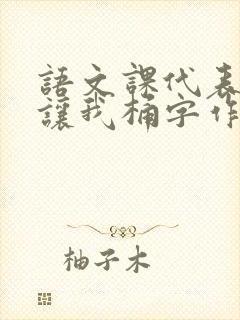 語文課代表
讓我桶字作
柚子木